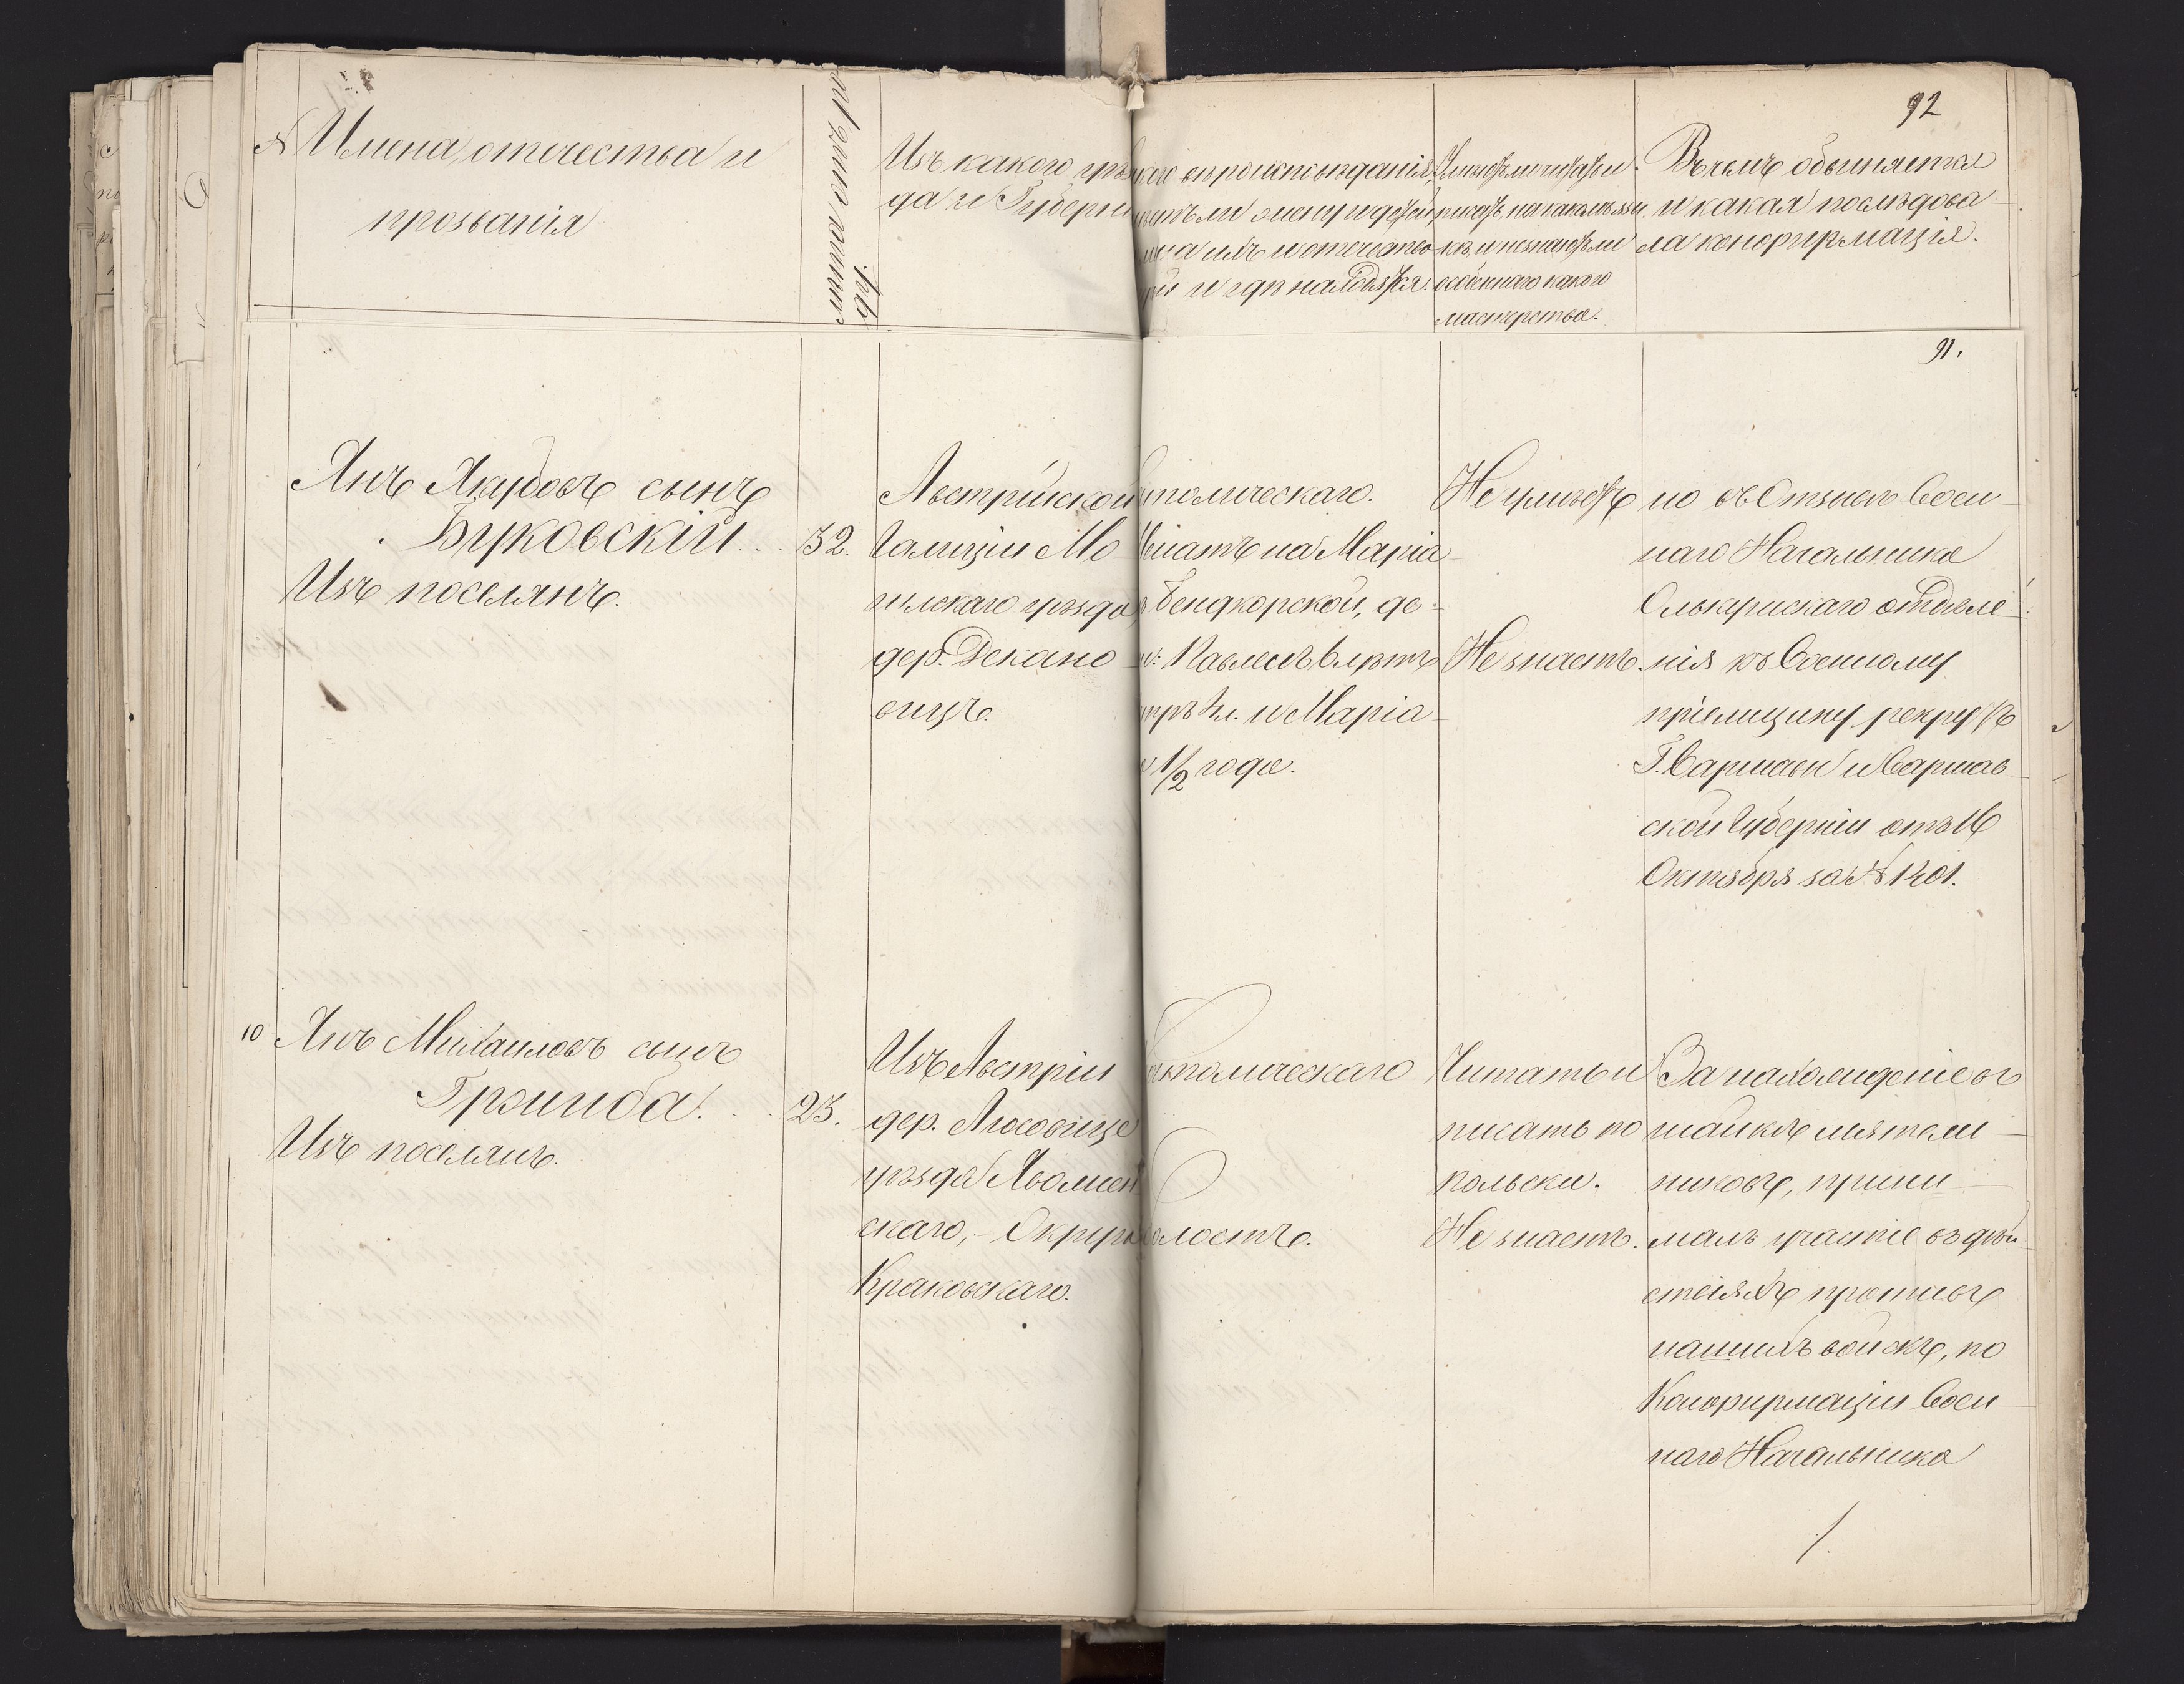 92
№ Имена, отечества и
прозванія
Сколько отъ роду
лѣтъ
Изъ какого уѣз
да и Губерні
вѣроисповѣданія,
ли жену и дѣтей,
имена ихъ и отечество
и гдѣ находятся.
Умѣютъ ли читать и
писать, на какомъ язы
кѣ, и не знаютъ ли
особеннаго какого
мастерства.
Въ чемъ обвиняется
и какая послѣдова
ла конфирмація.
91.
Янъ Якубовъ сынъ
Буковскій
Изъ поселянъ.
32.
Австрійской
Галиціи Мо
уѣзда
дер. Декано
вицъ.
толическаго.
Женатъ на Маріа
де-
и Маріа
1/2 года.
Не умѣетъ
Не знаетъ.
но въ Отзывѣ Воен
наго Начальника
Олькушскаго отдѣле
нія къ Военному
пріемщику рекрутъ
Г. Варшавы и Варшав
ской Губерніи отъ 16
Октября за № 1201.
10 Янъ Михайловъ сынъ
Грэмбa.
Изъ поселянъ.
23.
Изъ Австріи
дер. Люсовице
уѣзда
скаго, - Округа
Краковскаго.
Католическаго
Холостъ.
Читать и
писать по
польски.
Не знаетъ.
За нахожденіе въ
шайкѣ мятеж
никовъ, прини
малъ участіе въ дѣй
ствіяхъ противъ
нашихъ войскъ, по
Конфирмаціи Воен
наго Начальника
/.